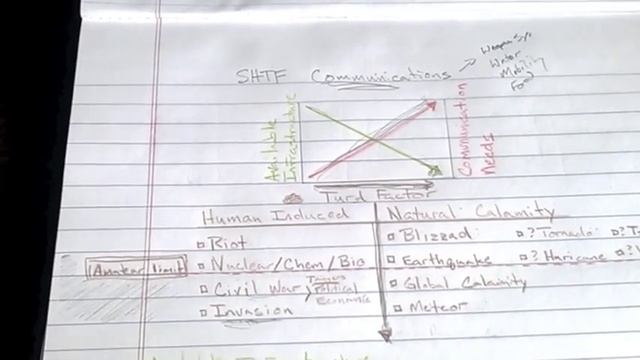 SHTF Communications
Weapon Sys
Water
Mobility
Food
Available
Infrastructure
Communication
Needs
Turd Factor
Human Induced
Natural Calamity
Riot
Blizzad
? Tornado
Nuclear/Chem/Bio
Earthquake
? Huricane
Amatear limit
Civil War
Political
Economic
Global Calamity
Invasion
Meteor